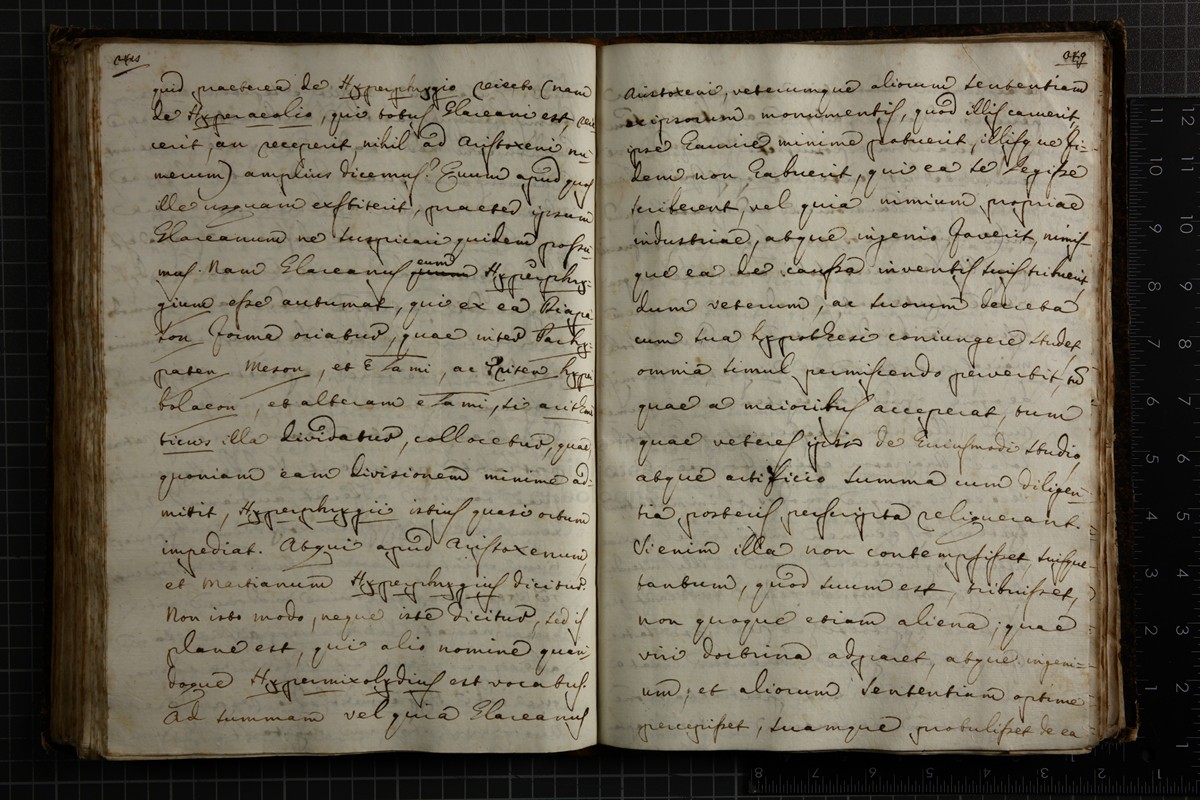 quid praeterea de Hyperphrygio reiecto (nam
de Hyperaeolio, qui totus Glareani est, reie
cerit, an receperit nihil ad Aristoxeni nu-
merum) amplius dicemus? Hunc apud quos
ille usquam exstiterit, praeter ipsum
Glareanum ne suspicari quidem possu
mus. Nam Glareanus eum Hyperphry-
gium esse autumat, qui ex ea Diapa
son forma oriatur, quae inter Parhy-
paten Meson, et E la mi, ac Triten hyper
bolaeon, et alteram e la mi, si arithme
ticως illa dividatur, collocetur, quae
quoniam eam divisionem minime ad-
mittit, Hyperphrygii istius quasi ortum
impediat. Atqui apud Aristoxenum
et Martianum Hyperphrygius dicitur.
Non isto modo, neque iste dicitur, sed is
plane est, qui alio nomine quan-
doque Hypermixolydius est vocatus.
Ad summam vel quia Glareanus
Aristoxeni, veterumque aliorum sententiam
ex ipsorum monumentis, quod illis caruerit
ipse haurire minime potuerit, illisque fi-
dem non habuerit, qui ea se legisse
scriberent, vel quia nimium propriae
industriae, atque ingenio faverit, nimis-
que ea de caussa inventis suis tribuerit,
dum veterum, ac suorum decreta
cum sua hypothesi coniungere studet,
omnia simul permiscendo pervertit, tum
quae a maioribus acceperat, tum
quae veteres ipsis de huiusmodi studio,
atque artificio summa cum diligen-
tia posteris perscripta reliquerant.
Si enim illa non contempsisset suisque
tantum, quod suum est, tribuisset,
non quoque etiam aliena; quae
viri doctrina adparet, atque ingeni-
um, et aliorum sententiam optime
percepisset, suamque protulisset de ea